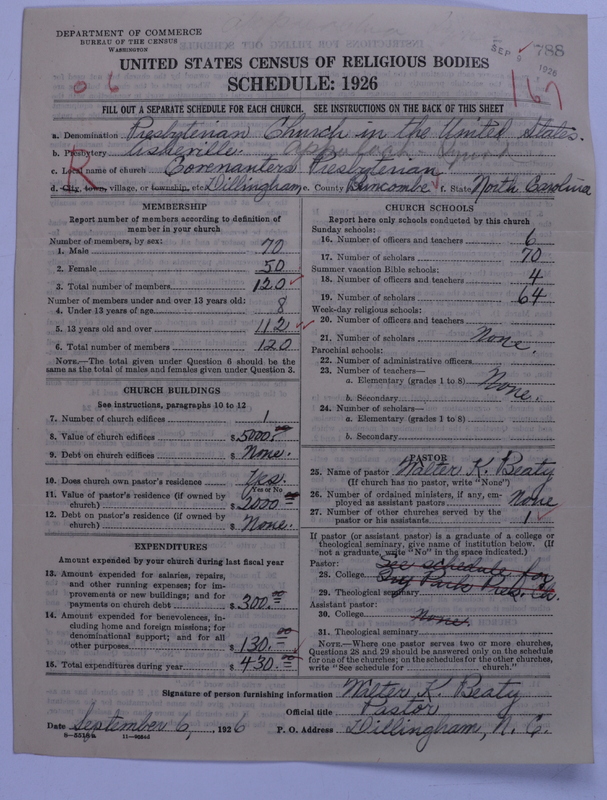 DEPARTMENT OF COMMERCE
BUREAU OF THE CENSUS
WASHINGTON
SEP 1926
788
UNITED STATES CENSUS OF RELIGIOUS BODIES
SCHEDULE: 1926
0 6
167
FILL OUT A SEPARATE SCHEDULE FOR EACH CHURCH. SEE INSTRUCTIONS ON THE BACK OF THIS SHEET
a. Denomination Presbyterian Church in the United States.
b. Presbytery Asheville. Appalachia Synod
R
c. Local name of church Covenanters Presbyterian
d. City, town, village, or township, etc Dillingham e. County Buncombe f. State North Carolina
MEMBERSHIP
Report number of members according to definition of member in your church
Number of members, by sex:
1. Male 70
2. Female 50
3. Total number of members 120
Number of members under and over 13 years old:
4. Under 13 years of age 8
5. 13 years old and over 112
6. Total number of members 120
NOTE.—The total given under Question 6 should be the same as the total of males and females given under Question 3.
CHURCH BUILDINGS
See instructions, paragraphs 10 to 12
7. Number of church edifices 1
8. Value of church edifices $ 5000.00
9. Debt on church edifices $ None.
10. Does church own pastor's residence Yes.
(Yes or No)
11. Value of pastor's residence (if owned by church) $ 2000.00
12. Debt on pastor's residence (if owned by church) $ None.
EXPENDITURES
Amount expended by your church during last fiscal year
13. Amount expended for salaries, repairs, and other running expenses; for improvements or new buildings; and for payments on church debt $ 300.00
14. Amount expended for benevolences, including home and foreign missions; for denominational support; and for all other purposes $ 130.00
15. Total expenditures during year $ 430.00
CHURCH SCHOOLS
Report here only schools conducted by this church
Sunday schools:
16. Number of officers and teachers 6
17. Number of scholars 70
Summer vacation Bible schools:
18. Number of officers and teachers 4
19. Number of scholars 64
Week-day religious schools:
20. Number of officers and teachers
21. Number of scholars None.
Parochial schools:
22. Number of administrative officers
23. Number of teachers—
a. Elementary (grades 1 to 8) None.
b. Secondary
24. Number of scholars—
a. Elementary (grades 1 to 8)
b. Secondary
PASTOR
25. Name of pastor Walter K. Beaty
(If church has no pastor, write "None")
26. Number of ordained ministers, if any, employed as assistant pastors None
27. Number of other churches served by the pastor or his assistants 1
If pastor (or assistant pastor) is a graduate of a college or theological seminary, give name of institution below. (If not a graduate, write "No" in the space indicated.)
Pastor:
See schedule for
28. College
29. Theological seminary
Assistant pastor:
30. College None.
31. Theological seminary
NOTE.—Where one pastor serves two or more churches, Questions 28 and 29 should be answered only on the schedule for one of the churches; on the schedules for the other churches, write "See schedule for church."
Signature of person furnishing information Walter K. Beaty
Official title Pastor
Date September 6, 1926 P. O. Address Dillingham, N. C.